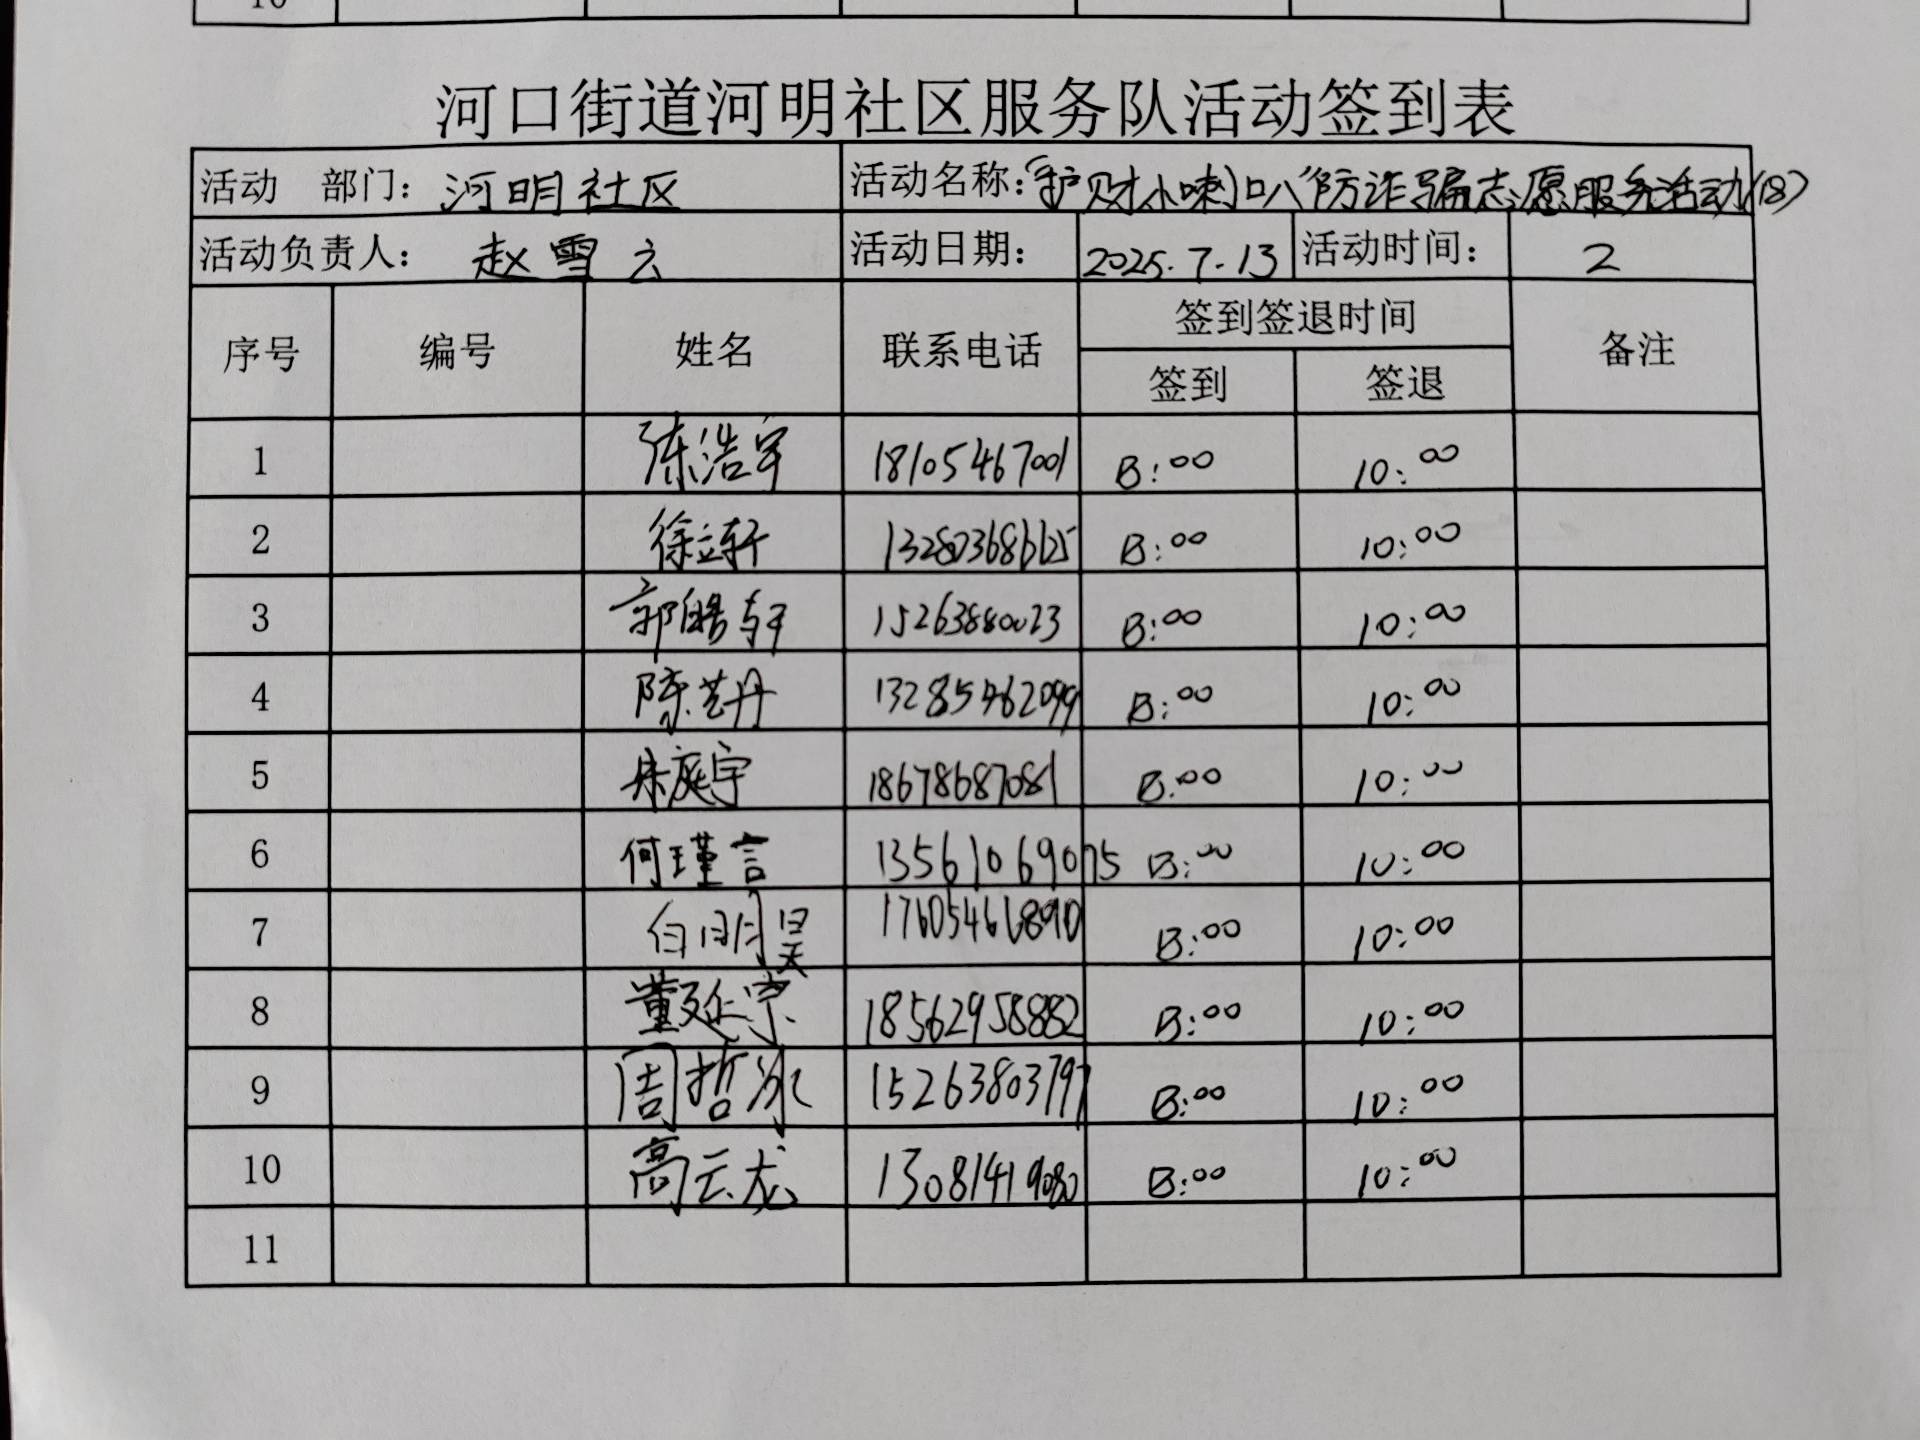 10
河口街道河明社区服务队活动签到表
活动 部门：河明社区 活动名称：“护财小喇叭”防诈骗志愿服务活动(18)
活动负责人：赵雪云 活动日期：2025.7.13 活动时间：2
序号 编号 姓名 联系电话 签到签退时间 备注
签到 签退
1 陈浩宇 18105467001 8:00 10:00
2 徐立轩 8:00 10:00
3 郭皓轩 15263880023 8:00 10:00
4 陈艺丹 13285462099 8:00 10:00
5 庭宇 18678687081 8:00 10:00
6 何瑾言 13561069075 8:00 10:00
7 白明昊 17605461890 8:00 10:00
8 董延宗 18562958882 8:00 10:00
9 周哲冰 15263803797 8:00 10:00
10 高云龙 13081419080 8:00 10:00
11